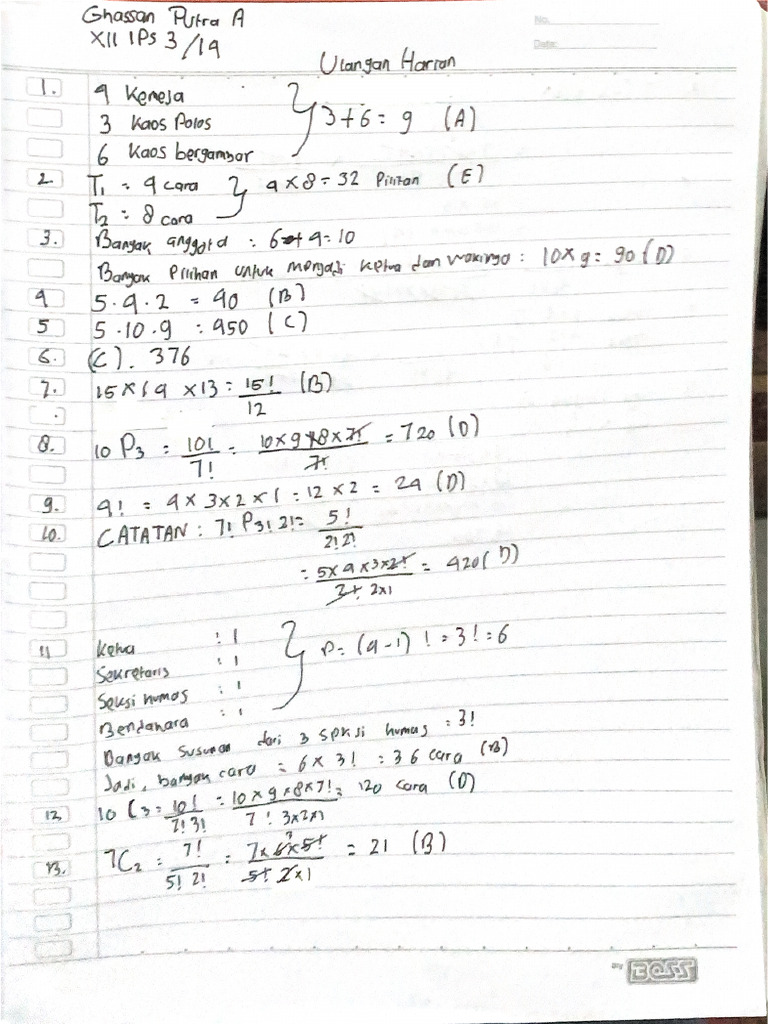 Ghassan Putra A
XII IPS 3/19
No.
Date:
Ulangan Harian
1. 4 Kemeja
3 Kaos Polos } 3+6 = 9 (A)
6 Kaos bergambar
2. T1 = 4 cara } 4 x 8 = 32 Pilihan (E)
T2 = 8 cara
3. Banyak anggota : 6+4=10
Banyak Pilihan untuk menjadi ketua dan wakinya : 10 x 9 = 90 (D)
4 5.4.2 = 40 (B)
5 5.10.9 : 450 (C)
6. (C). 376
7. 15 x 14 x 13 = 15!/12 (B)
8. 10 P3 = 10!/7! = 10 x 9 x 8 x 7!/7! = 720 (D)
9. 4! = 4 x 3 x 2 x 1 = 12 x 2 = 24 (D)
10. CATATAN : 7! P3! 2! = 5!/2!2!
= 5 x 4 x 3 x 2!/2! 2x1 = 420 (D)
11 Ketua : 1
Sekretaris : 1 } P = (4-1)! = 3! = 6
Seksi humas : 1
Bendahara : 1
Banyak susunan dari 3 seksi humas = 3!
Jadi, banyak cara = 6 x 3! = 36 cara (B)
12 10 C3 = 10!/7! 3! = 10 x 9 x 8 x 7!/7! 3x2x1 = 120 cara (D)
13. 7C2 = 7!/5! 2! = 7 x 6 3 x 5!/5! 2 x 1 = 21 (B)
my BOSS